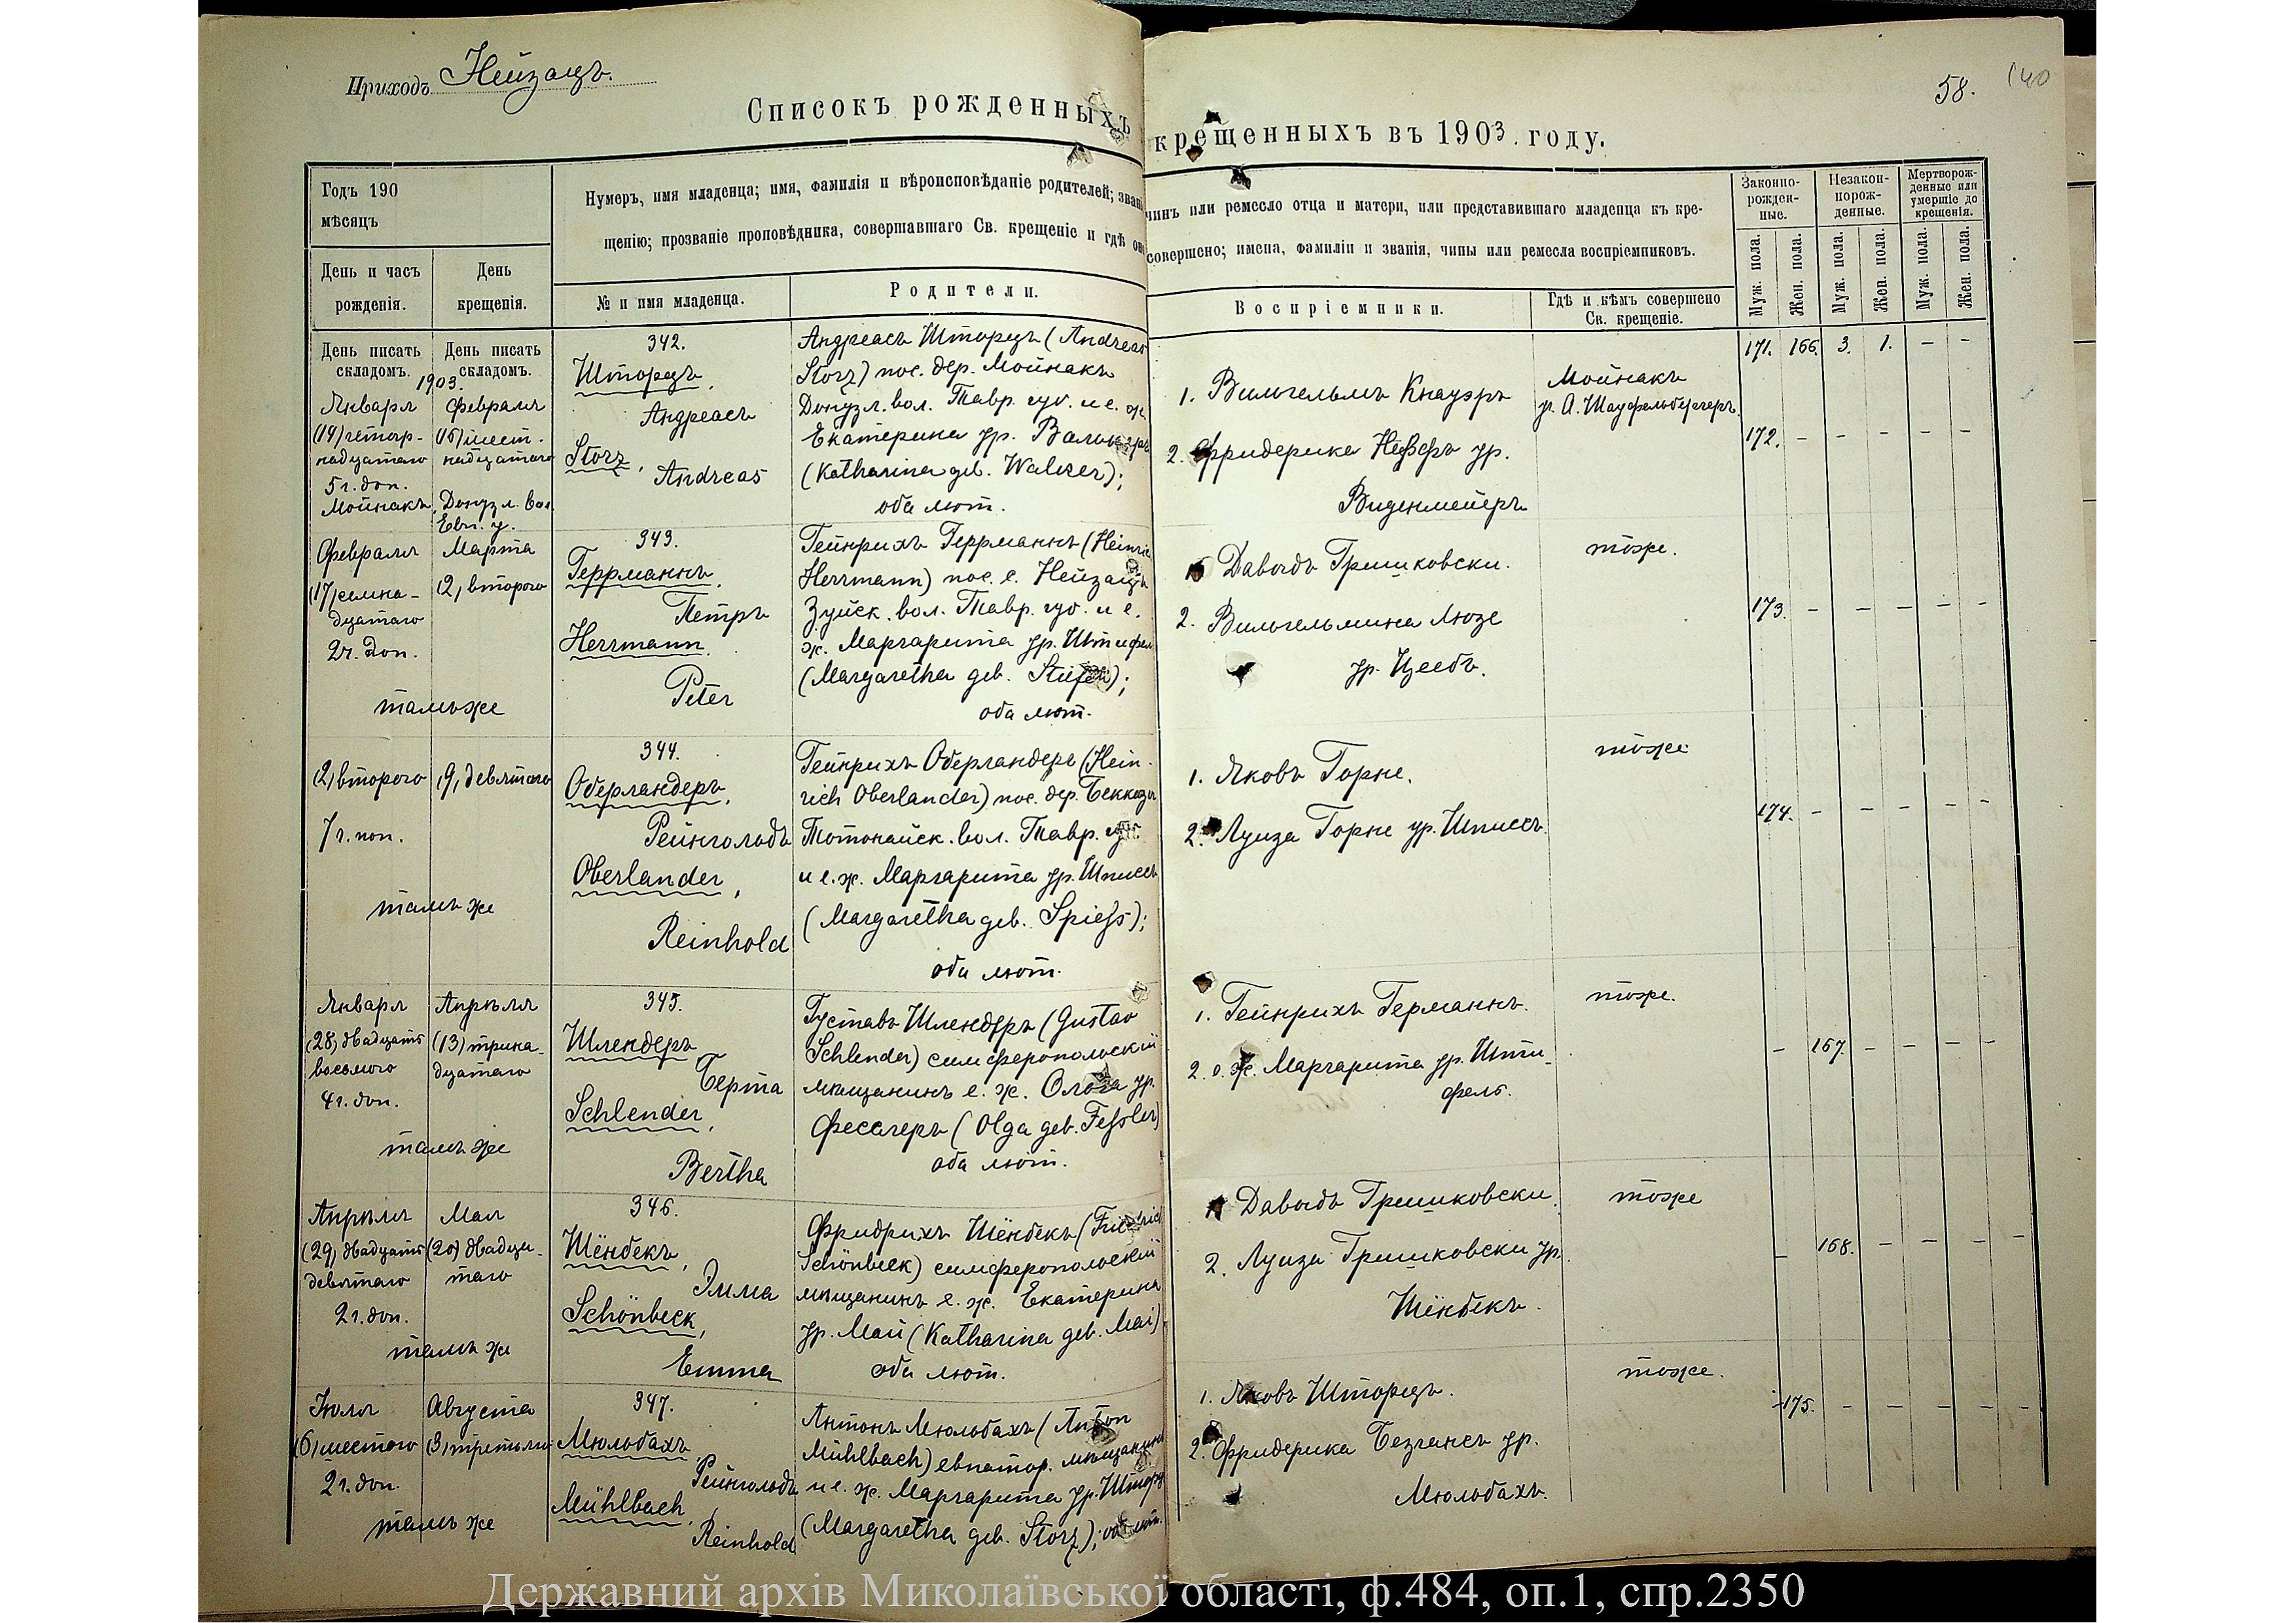 Приходъ Нейзацъ.
58.
140
Списокъ рожденныхъ
крещенныхъ въ 1903 году.
Годъ 190
мѣсяцъ
День и часъ
рожденія.
День
крещенія.
Нумеръ, имя младенца; имя, фамилія и вѣроисповѣданіе родителей; звані
щенію; прозваніе проповѣдника, совершавшаго Св. крещеніе и гдѣ оно
№ и имя младенца.
Родители.
чинъ или ремесло отца и матери, или представившаго младенца къ кре-
совершено; имена, фамиліи и званія, чины или ремесла воспріемниковъ.
Воспріемники.
Гдѣ и кѣмъ совершено
Св. крещеніе.
Законно-
рожден-
ные.
Незакон-
норож-
денные.
Мертворож-
денные или
умершіе до
крещенія.
Муж. пола.
Жен. пола.
Муж. пола.
Жен. пола.
Муж. пола.
Жен. пола.
День писать
складомъ.
День писать
складомъ.
1903.
171. 166. 3. 1. – –
Января
(14) четыр-
надцатаго
5 ч. доп.
Февраля
(16) шест-
надцатаго
Мойнакъ, Донузл. вол.
Евп. у.
342.
Шторцъ,
Андреасъ
Storz,
Andreas
Андреасъ Шторцъ (Andreas
Storz) пос. дер. Мойнакъ
Донузл. вол. Тавр. губ. и е. ж.
Екатерина ур. Вальцеръ
(Katharina geb. Walzer);
оба лют.
1. Вильгельмъ Кнауэръ
2. Фридерика ур.
Виденмейеръ
Мойнакъ
у. А. Шауфельбергеръ.
172. – – – – –
Февраля
(17) семна-
дцатаго
2 ч. доп.
Марта
(2) второго
тамъ же
343.
Геррманнъ,
Петръ
Herrmann,
Peter
Гейнрихъ Геррманнъ (Heinrich
Herrmann) пос. с. Нейзацъ
Зуйск. вол. Тавр. губ. и е.
ж. Маргарита ур. Штифель
(Margaretha geb. Stiefel);
оба лют.
1. Давыдъ Гришковски.
2. Вильгельмина Люзе
ур. Цеебъ.
тоже.
173. – – – – –
(2) второго
7 ч. поп.
(9) девятаго
тамъ же
344.
Оберландеръ,
Рейнгольдъ
Oberlander,
Reinhold
Гейнрихъ Оберландеръ (Hein-
rich Oberlander) пос. дер. Бекказы
Тотонайск. вол. Тавр. губ.
и е. ж. Маргарита ур. Шписсъ
(Margaretha geb. Spieſs);
оба лют.
1. Яковъ Горне.
2. Луиза Горне ур. Шписсъ.
тоже
174. – – – – –
Января
(28) двадцать
восьмого
4 ч. доп.
Апрѣля
(13) трина-
дцатаго
тамъ же
345.
Шлендеръ
Берта
Schlender,
Bertha
Густавъ Шлендеръ (Gustav
Schlender) симферопольскій
мѣщанинъ е. ж. Ольга ур.
Фесслеръ (Olga geb. Feſsler)
оба лют.
1. Гейнрихъ Германнъ.
2. е. ж. Маргарита ур. Шти-
фель.
тоже.
– 167. – – – –
Апрѣля
(29) двадцать
девятаго
2 ч. доп.
Мая
(20) двадца-
таго
тамъ же
346.
Шёнбекъ,
Эмма
Schönbeck,
Emma
Фридрихъ Шёнбекъ (Friedrich
Schönbeck) симферопольскій
мѣщанинъ е. ж. Екатерина
ур. Май (Katharina geb. Mai)
оба лют.
1. Давыдъ Гришковски
2. Луиза Гришковски ур.
Шёнбекъ.
тоже
– 168. – – – –
Іюля
(6) шестого
2 ч. доп.
Августа
(3) третьяго
тамъ же
347.
Мюльбахъ,
Рейнгольдъ
Mühlbach,
Reinhold
Антонъ Мюльбахъ (Anton
Mühlbach) евпатор. мѣщанинъ
и е. ж. Маргарита ур. Шторц
(Margaretha geb. Storz); оба лют.
1. Яковъ Шторцъ.
2. Фридерика ур.
Мюльбахъ.
тоже.
175. – – – – –
Державний архів Миколаївської області, ф.484, оп.1, спр.2350